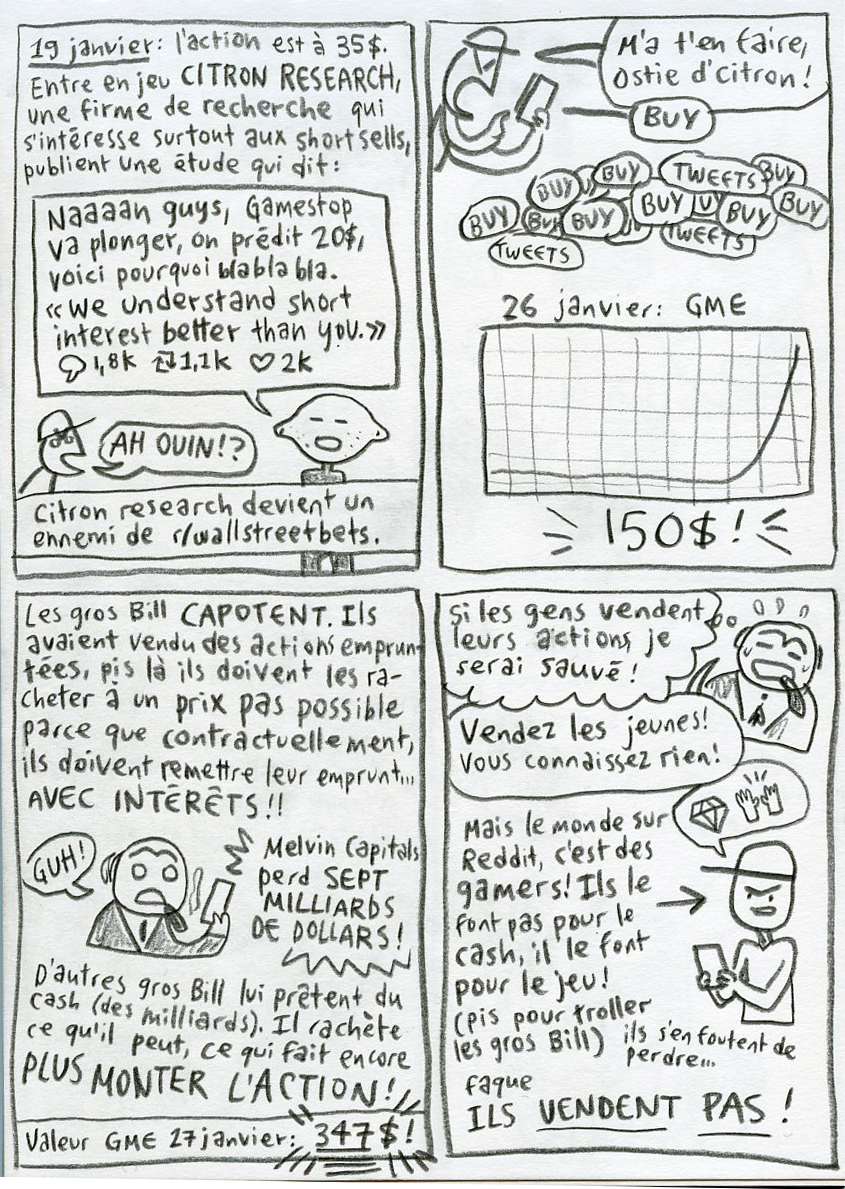 19 janvier: l'action est à 35$.
Entre en jeu CITRON RESEARCH,
une firme de recherche qui
s'intéresse surtout aux short sells,
publient une étude qui dit:
Naaaan guys, Gamestop
va plonger, on prédit 20$,
voici pourquoi bla bla bla.
«We understand short
interest better than you.»
1,8k 1,1k 2k
AH OUIN!?
Citron research devient un
ennemi de r/wallstreetbets.
M'a t'en faire,
Ostie d'citron!
BUY
BUY
BUY
TWEETS
BUY
BUY
BUY
BUY
BUY
BUY
BUY
TWEETS
TWEETS
26 janvier: GME
150$!
Les gros Bill CAPOTENT. Ils
avaient vendu des actions emprun-
tées, pis là ils doivent les ra-
cheter à un prix pas possible
parce que contractuellement,
ils doivent remettre leur emprunt...
AVEC INTÉRÊTS!!
GUH!
Melvin Capitals
perd SEPT
MILLIARDS
DE DOLLARS!
D'autres gros Bill lui prêtent du
cash (des milliards). Il rachète
ce qu'il peut, ce qui fait encore
PLUS MONTER L'ACTION!
Valeur GME 27 janvier: 347$!
Si les gens vendent
leurs actions je
serai sauvé!
Vendez les jeunes!
Vous connaissez rien!
Mais le monde sur
Reddit, c'est des
gamers! Ils le
font pas pour le
cash, il le font
pour le jeu!
(pis pour troller
les gros Bill)
ils s'en foutent de
perdre...
faque
ILS VENDENT PAS!